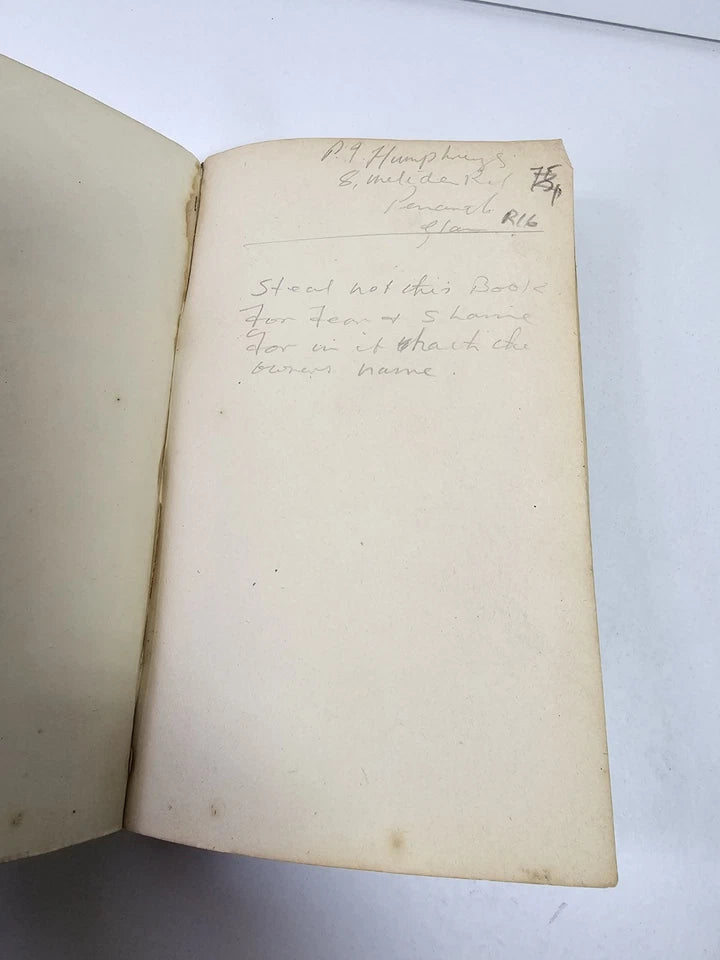 P. J. Humphreys
8, Meliden Rd
Penarth
Glam
R16
Steal not this Book
For Fear & Shame
For in it hath the
owners name.